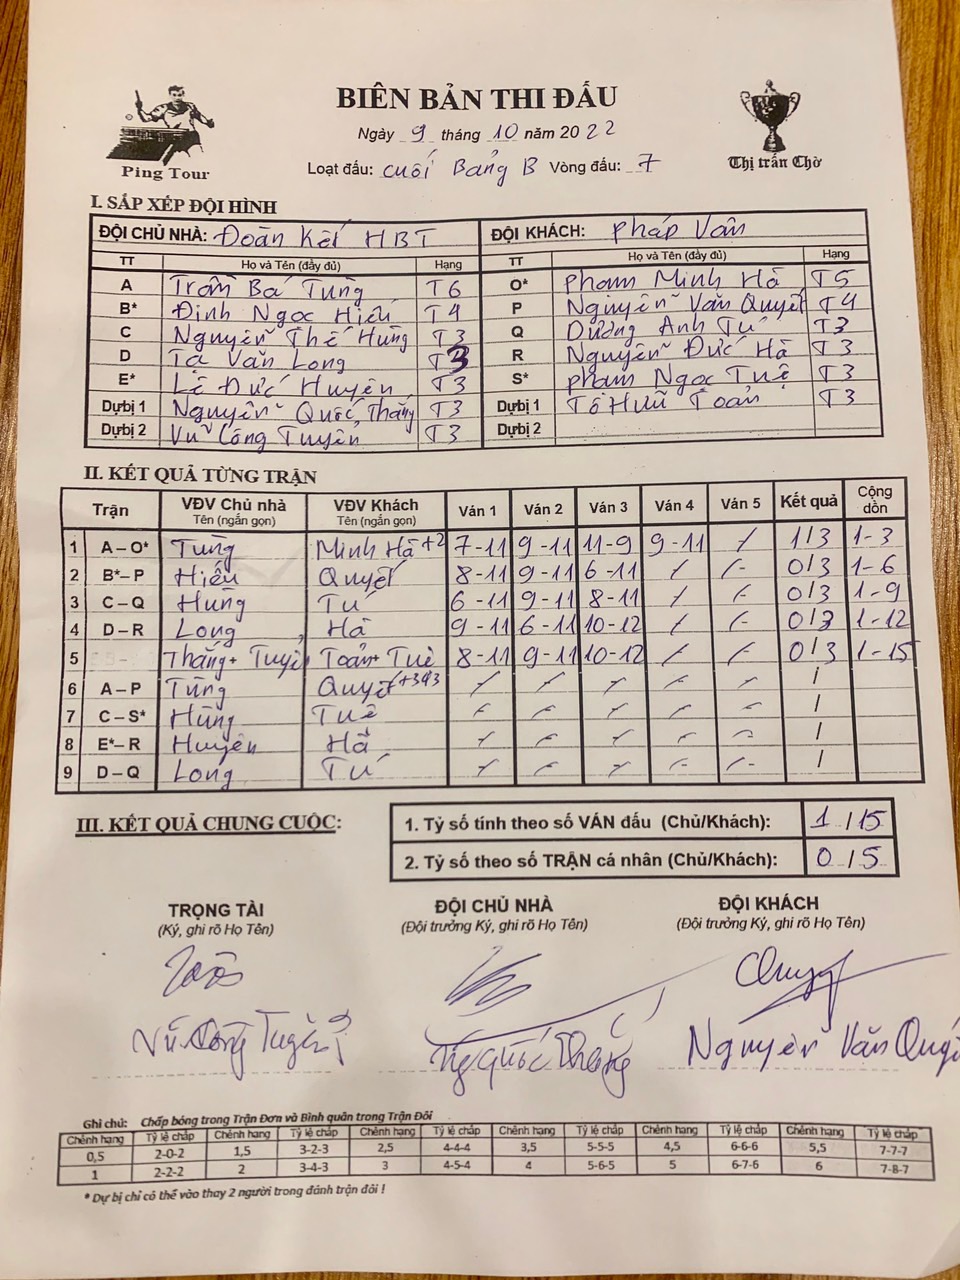 BIÊN BẢN THI ĐẤU
Ngày 9 tháng 10 năm 2022
Ping Tour
Loạt đấu: cuối Bảng B Vòng đấu: 7
Thị trấn Chờ
I. SẮP XẾP ĐỘI HÌNH
ĐỘI CHỦ NHÀ: Đoàn Kết HBT ĐỘI KHÁCH: Pháp Vân
TT Họ và Tên (đầy đủ) Hạng TT Họ và Tên (đầy đủ) Hạng
A Trần Bá Tùng T6 O* Phạm Minh Hà T5
B* Đinh Ngọc Hiếu T4 P Nguyễn Văn Quyết T4
C Nguyễn Thế Hùng T3 Q Dương Anh Tú T3
D Tạ Văn Long T3 R Nguyễn Đức Hà T3
E* Lê Đức Huyên T3 S* Phạm Ngọc Tuệ T3
Dự bị 1 Nguyễn Quốc Thắng T3 Dự bị 1 Tô Hữu Toản T3
Dự bị 2 Vũ Công Tuyên T3 Dự bị 2
II. KẾT QUẢ TỪNG TRẬN
Trận VĐV Chủ nhà Tên (ngắn gọn) VĐV Khách Tên (ngắn gọn) Ván 1 Ván 2 Ván 3 Ván 4 Ván 5 Kết quả Cộng dồn
1 A – O* Tùng Minh Hà +2 7-11 9-11 11-9 9-11 / 1/3 1-3
2 B* – P Hiếu Quyết 8-11 9-11 6-11 / / 0/3 1-6
3 C – Q Hùng Tú 6-11 9-11 8-11 / / 0/3 1-9
4 D – R Long Hà 9-11 6-11 10-12 / / 0/3 1-12
5 Thắng + Tuyê Toản + Tuệ 8-11 9-11 10-12 / / 0/3 1-15
6 A – P Tùng Quyết +343 / / / / / /
7 C – S* Hùng Tuệ / / / / / /
8 E* – R Huyên Hà / / / / / /
9 D – Q Long Tú / / / / / /
III. KẾT QUẢ CHUNG CUỘC:
1. Tỷ số tính theo số VÁN đấu (Chủ/Khách): 1/15
2. Tỷ số theo số TRẬN cá nhân (Chủ/Khách): 0/5
TRỌNG TÀI ĐỘI CHỦ NHÀ ĐỘI KHÁCH
(Ký, ghi rõ Họ Tên) (Đội trưởng Ký, ghi rõ Họ Tên) (Đội trưởng Ký, ghi rõ Họ Tên)
Vũ Công Tuyên Ng Quốc Thắng Nguyễn Văn Quyết
Ghi chú: Chấp bóng trong Trận Đơn và Bình quân trong Trận Đôi
Chênh hạng Tỷ lệ chấp Chênh hạng Tỷ lệ chấp Chênh hạng Tỷ lệ chấp Chênh hạng Tỷ lệ chấp Chênh hạng Tỷ lệ chấp Chênh hạng Tỷ lệ chấp
0,5 2-0-2 1,5 3-2-3 2,5 4-4-4 3,5 5-5-5 4,5 6-6-6 5,5 7-7-7
1 2-2-2 2 3-4-3 3 4-5-4 4 5-6-5 5 6-7-6 6 7-8-7
* Dự bị chỉ có thể vào thay 2 người trong đánh trận đôi !